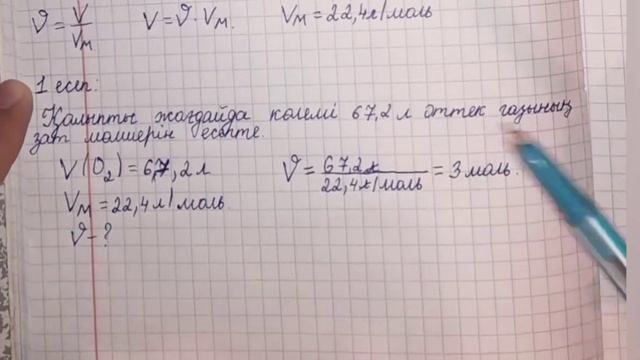 ϑ = V/Vм V = ϑ · Vм. Vм = 22,4 л/моль
1 есеп:
Қалыпты жағдайда көлемі 67,2 л оттек газының
зат мөлшерін есепте.
V(O₂) = 67,2 л ϑ = 67,2 л / 22,4 л/моль = 3 моль.
Vм = 22,4 л/моль.
ϑ - ?